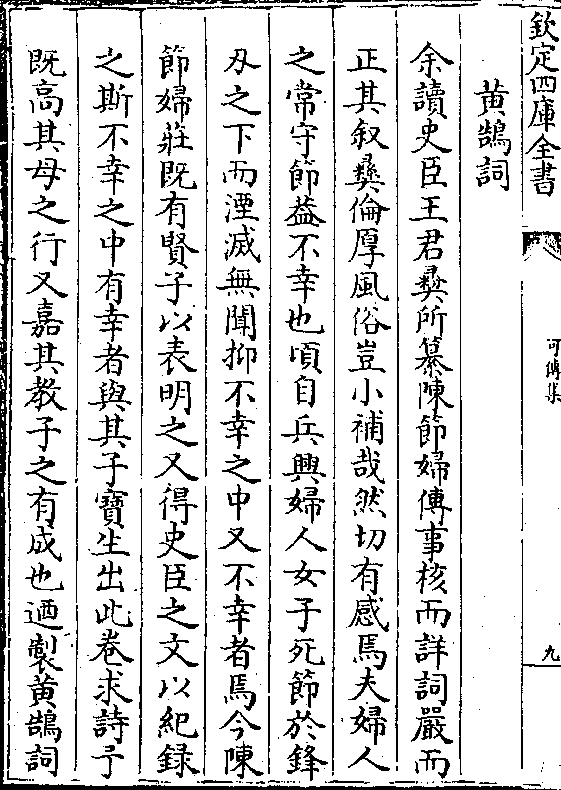 欽定四庫全書
可傳集
九
黃鵠詞
余讀史臣王君彝所纂陳節婦傳事核而詳詞嚴而
正其叙彝倫厚風俗豈小補哉然切有感焉夫婦人
之常守節葢不幸也頃自兵興婦人女子死節於鋒
刄之下而湮滅無聞抑不幸之中又不幸者焉今陳
節婦莊既有賢子以表明之又得史臣之文以紀録
之斯不幸之中有幸者與其子寳生出此卷求詩于
既高其母之行又嘉其教子之有成也迺製黄鵠詞